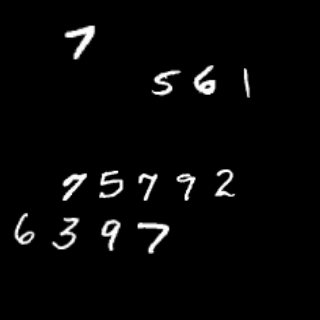 7
561
75792
6397